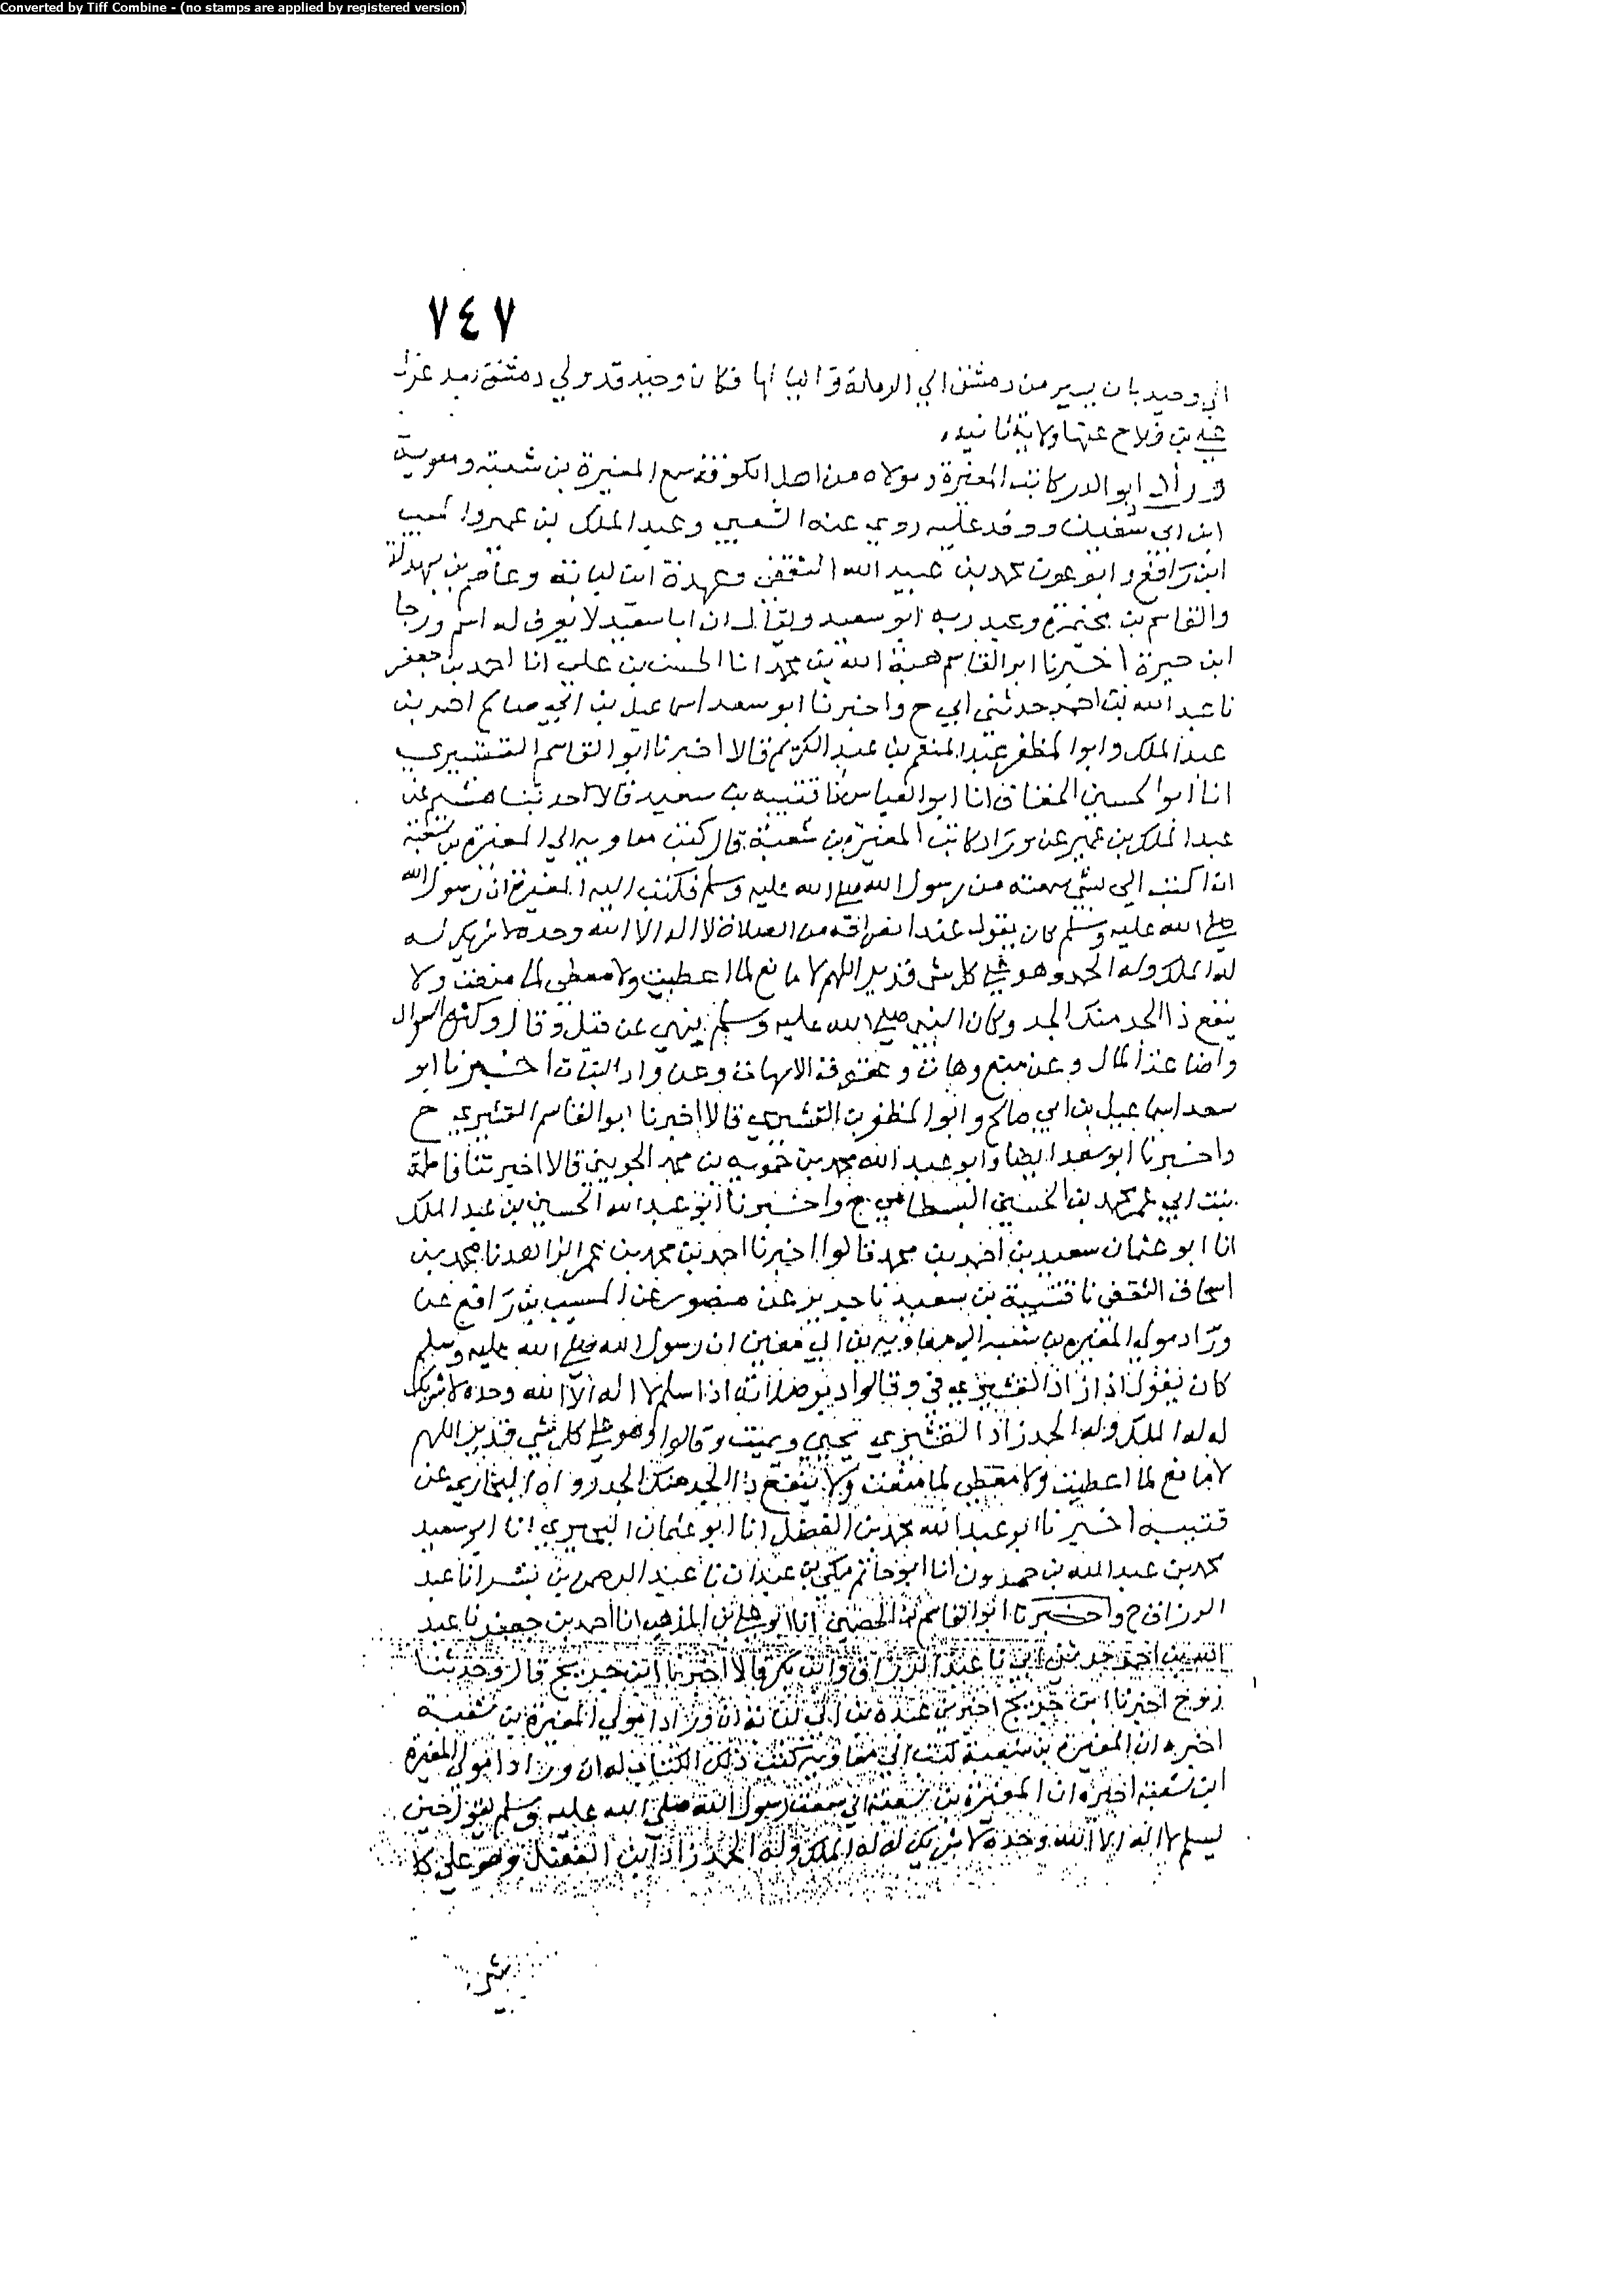 Converted by Tiff Combine - (no stamps are applied by registered version)
٧٤٧
الى وحيد بان يسير من دمشق الي الرملة واليا لها فكان وحيد قد ولي دمشق بعد عزل
بن فلاح عنها ولاية ثانيه
وراد ابو الورد كاتب المغيرة ومولاه من اهل الكوفة سمع المغيرة بن شعبة ومعوية
ابن ابي سفين ووفد عليه روي عنه الشعبي وعبد الملك بن عمير والمسيب
ابن رافع وابو عون محمد بن عبيد الله الثقفي وعبدة ابن لبابة وعاصم بن بهدلة
والقاسم بن مخيمرة وعبد ربه ابو سعيد ويقال ان ابا سعيد لا يعرف له اسم ورجا
ابن حيوة اخبرنا ابو القاسم هبة الله بن محمد انا الحسن بن علي انا احمد بن جعفر
نا عبد الله بن احمد حدثني ابي ح واخبرنا ابو سعد اسماعيل بن ابي صالح احمد بن
عبد الملك وابو المظفر عبد المنعم بن عبد الكريم قالا اخبرنا ابو القاسم القشيري
انا ابو الحسين الخفاف انا ابو العباس نا قتيبه بن سعيد قالا حدثنا هشيم عن
عبد الملك بن عمير عن وراد كاتب المغيرة بن شعبة قال كتب معاويه الي المغيرة بن شعبة
ان اكتب الي بشي سمعته من رسول الله صلى الله عليه وسلم فكتب اليه المغيرة ان رسول الله
صلى الله عليه وسلم كان يقول عند انصرافه من الصلاة لا اله الا الله وحده لا شريك له
له الملك وله الحمد وهو على كل شي قدير اللهم لا مانع لما اعطيت ولا معطي لما منعت ولا
ينفع ذا الجد منك الجد وكان النبي صلى الله عليه وسلم ينهي عن قيل وقال وكثرة السوال
واضاعة المال وعن منع وهات وعقوق الامهات وعن واد البنات اخبرنا ابو
سعد اسماعيل بن ابي صالح وابو المظفر بن القشيري قالا اخبرنا ابو القاسم القشيري ح
واخبرنا ابو سعد ايضا وابو عبد الله محمد بن حمويه بن محمد الجويني قالا اخبرتنا فاطمة
بنت ابي عمر محمد بن الحسين البسطامي ح واخبرنا ابو عبد الله الحسين بن عبد الملك
انا ابو عثمان سعيد بن احمد بن محمد قالوا اخبرنا احمد بن محمد بن عمر الزاهد نا محمد بن
اسحاق الثقفي نا قتيبة بن سعيد نا جرير عن منصور عن المسيب بن رافع عن
وراد مولى المغيرة بن شعبه الي معاوية بن ابي سفين ان رسول الله صلى الله عليه وسلم
كان يقول زاد القشيري في وقالوا دبر صلاته اذا سلم لا اله الا الله وحده لا شريك
له له الملك وله الحمد زاد القشيري يحيي ويميت وقالوا وهو على كل شي قدير اللهم
لا مانع لما اعطيت ولا معطي لما منعت ولا ينفع ذا الجد منك الجد رواه البخاري عن
قتيبه اخبرنا ابو عبد الله محمد بن الفضل انا ابو عثمان البحيري انا ابو سعيد
محمد بن عبد الله بن حمدون انا ابو حاتم مكي بن عبدان نا عبد الرحمن بن بشر انا عبد
الرزاق ح واخبرنا ابو القاسم بن الحصين انا ابو علي بن المذهب انا احمد بن جعفر نا عبد
الله بن احمد حدثني ابي نا عبد الرزاق وابن بكر قالا اخبرنا ابن جريج قال وحدثنا
روح اخبرنا ابن جريج اخبرني عبدة بن ابي لبابة ان ورادا مولي المغيرة بن شعبة
اخبره ان المغيرة بن شعبة كتب الي معاوية كتب ذلك الكتاب له ان ورادا مولى المغيرة
ابن شعبة اخبره ان المغيرة بن شعبة اني سمعت رسول الله صلى الله عليه وسلم يقول حين
يسلم لا اله الا الله وحده لا شريك له له الملك وله الحمد زاد ابن الفضل وهو على كل
شي